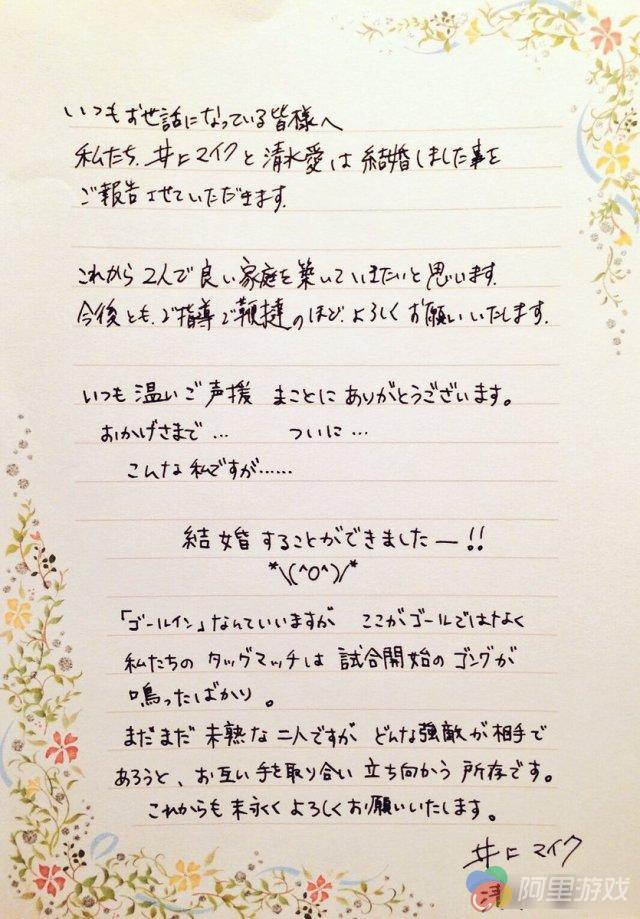 いつもお世話になっている皆様へ
私たち、井上マイクと清水愛は結婚しました事を
ご報告させていただきます。
これから2人で良い家庭を築いていきたいと思います。
今後とも、ご指導ご鞭撻のほど、よろしくお願いいたします。
いつも温いご声援 まことにありがとうございます。
おかげさまで… ついに…
こんな私ですが……
結婚することができましたー!!
*\(^O^)/*
「ゴールイン」なんていいますが ここがゴールではなく
私たちのタッグマッチは試合開始のゴングが
鳴ったばかり。
まだまだ未熟な二人ですが どんな強敵が相手で
あろうと、お互い手を取り合い立ち向かう所存です。
これからも末永くよろしくお願いいたします。
井上マイク
清
阿里游戏